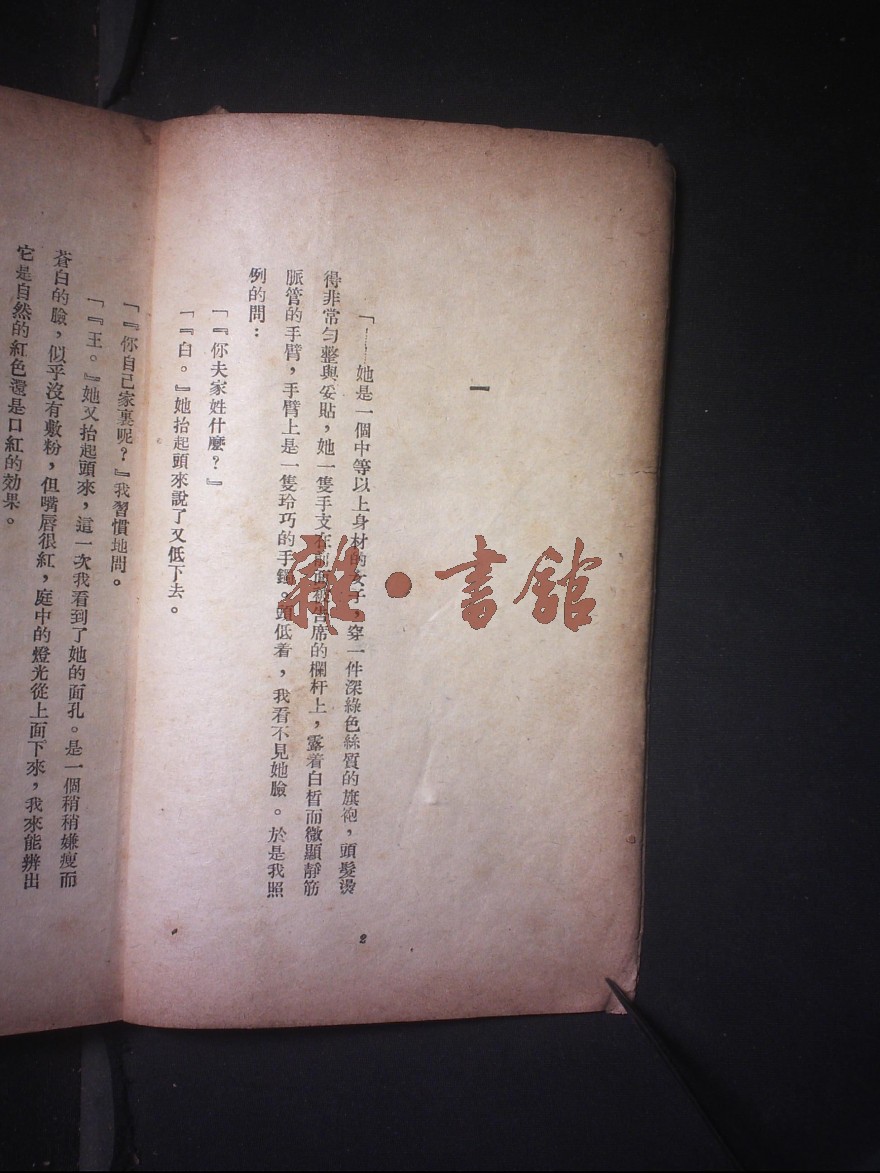 一
「……她是一個中等以上身材的女子，穿一件深綠色絲質的旗袍，頭髮燙
得非常勻整與妥貼，她一隻手支在前面被告席的欄杆上，露着白皙而微顯靜筋
脈管的手臂，手臂上是一隻玲巧的手鐲。頭低着，我看不見她臉。於是我照
例的問：
「『你夫家姓什麼？』
「『白。』她抬起頭來說了又低下去。
「『你自己家裏呢？』我習慣地問。
「『王。』她又抬起頭來，這一次我看到了她的面孔。是一個稍稍嫌瘦而
蒼白的臉，似乎沒有敷粉，但嘴唇很紅，庭中的燈光從上面下來，我來能辨出
它是自然的紅色還是口紅的効果。
2
雜·書館